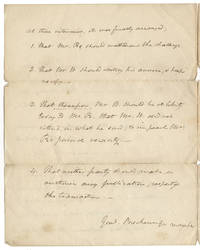 At this interview, it was finally arranged,
1. That Mr. P. should withdraw the challenge
2. That Mr. B. should destroy his answer, & keep no copy.
3. That Mr. B. should be at liberty
to say to Mr. P. that Mr. B. did not
intend, in what he said, to impeach Mr.
P's personal veracity.
4. That neither party should make or
any publication, respecting
the transaction.